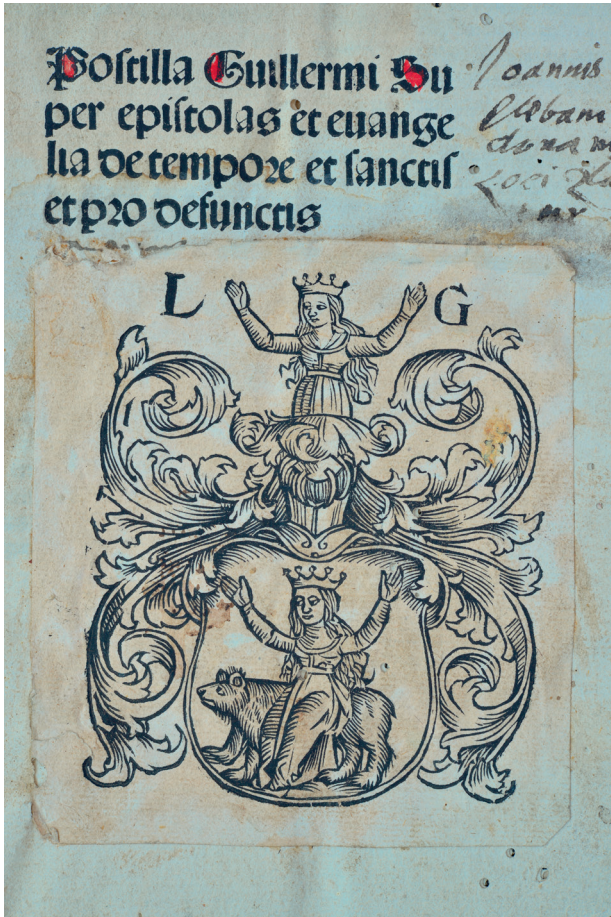 Postilla Guillermi Su
per epistolas et euange
lia de tempore et sanctis
et pro defunctis
Joannis
plebani
L G